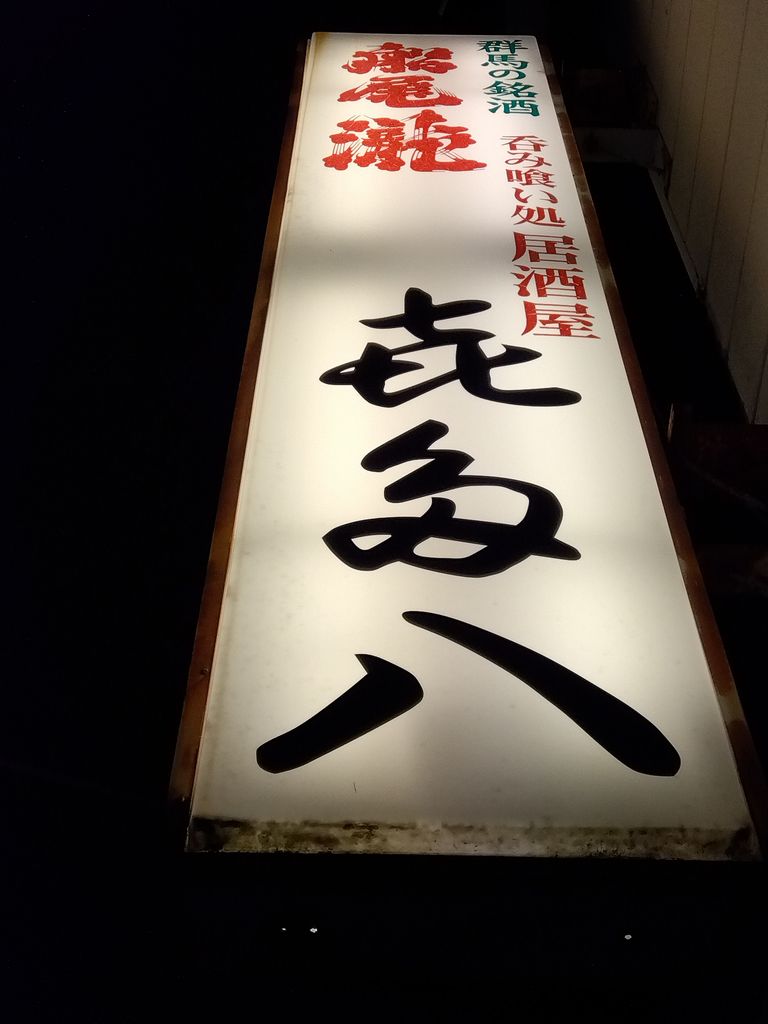 群馬の銘酒
船尾瀧
呑み喰い処 居酒屋
㐂多八